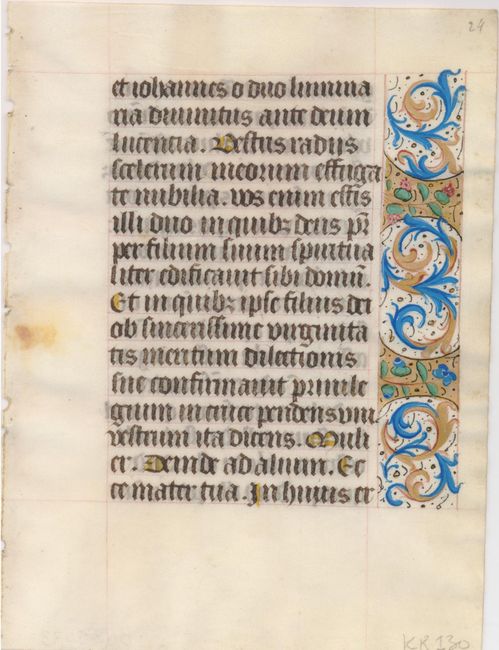 24
et iohannes o duo lumina
ria diuinitus ante deum
lucentia. Vestris radiis
scelerum meorum effuga
te nubilia. vos enim estis
illi duo in quibꝫ deus pr̄
per filium suum spiritua
liter edificauit sibi domū.
Et in quibꝫ ipse filius dei
ob sincerissime virginita
tis meritum dilectionis
sue confirmauit priuile
gium in cruce pendens vni
vestrum ita dicens. Muli
er. Deinde ad alium. Ec
ce mater tua. In huius er
KR 130